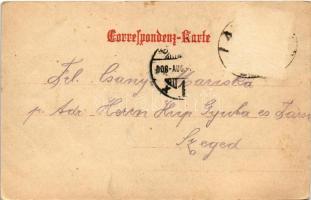 Correspondenz-Karte
908 AUG
Frl. Csányi Mariska
p. Adr. Herrn Hup Gyula és Társa
Szeged